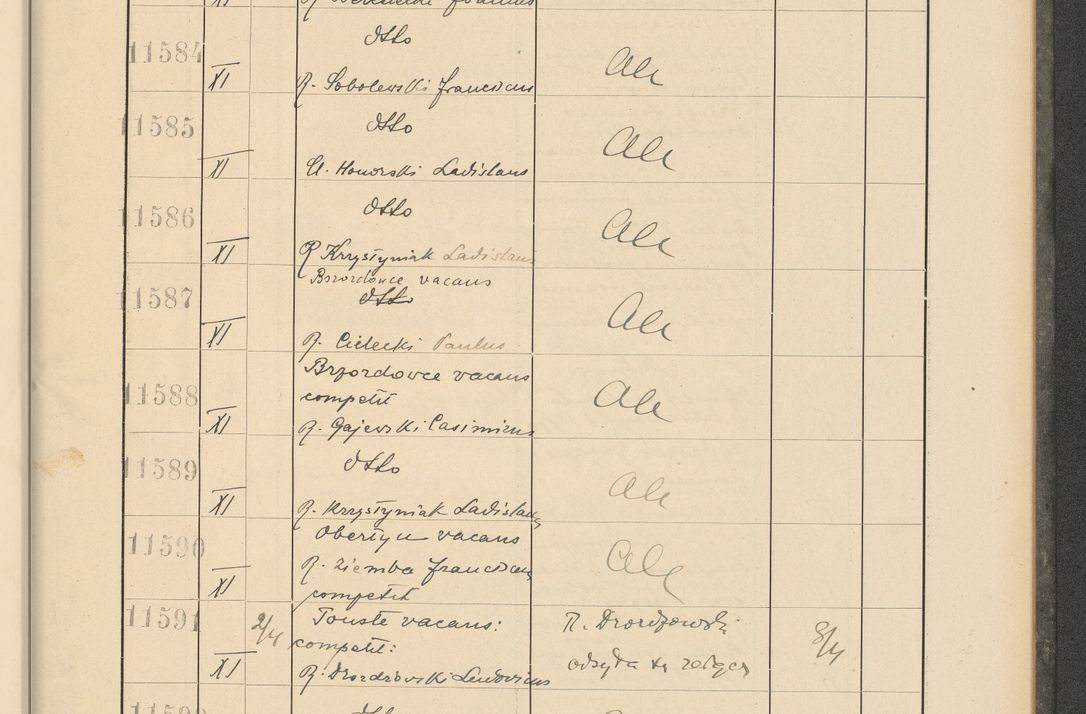 XI
11584
dtto
XI R. Sobolewski Franciscus
Ale
11585
dtto
XI Cl. Honorski Ladislaus
Ale
11586
dtto
XI R. Krzystyniak Ladislaus
Ale
11587
Brzozdowce vacans
dtto
XI R. Cielecki Paulus
Ale
11588
Brzozdowce vacans
competit
XI R. Gajewski Casimirus
Ale
11589
dtto
XI R. Krzystyniak Ladislaus
Ale
11590
Obertyn vacans
R. Ziemba Franciscus
XI competit
Ale
11591
Touste vacans:
2/4 competit:
XI R. Drozdowski Ludovicus
R. Drozdzowski
odsyła się
8/4
dtto